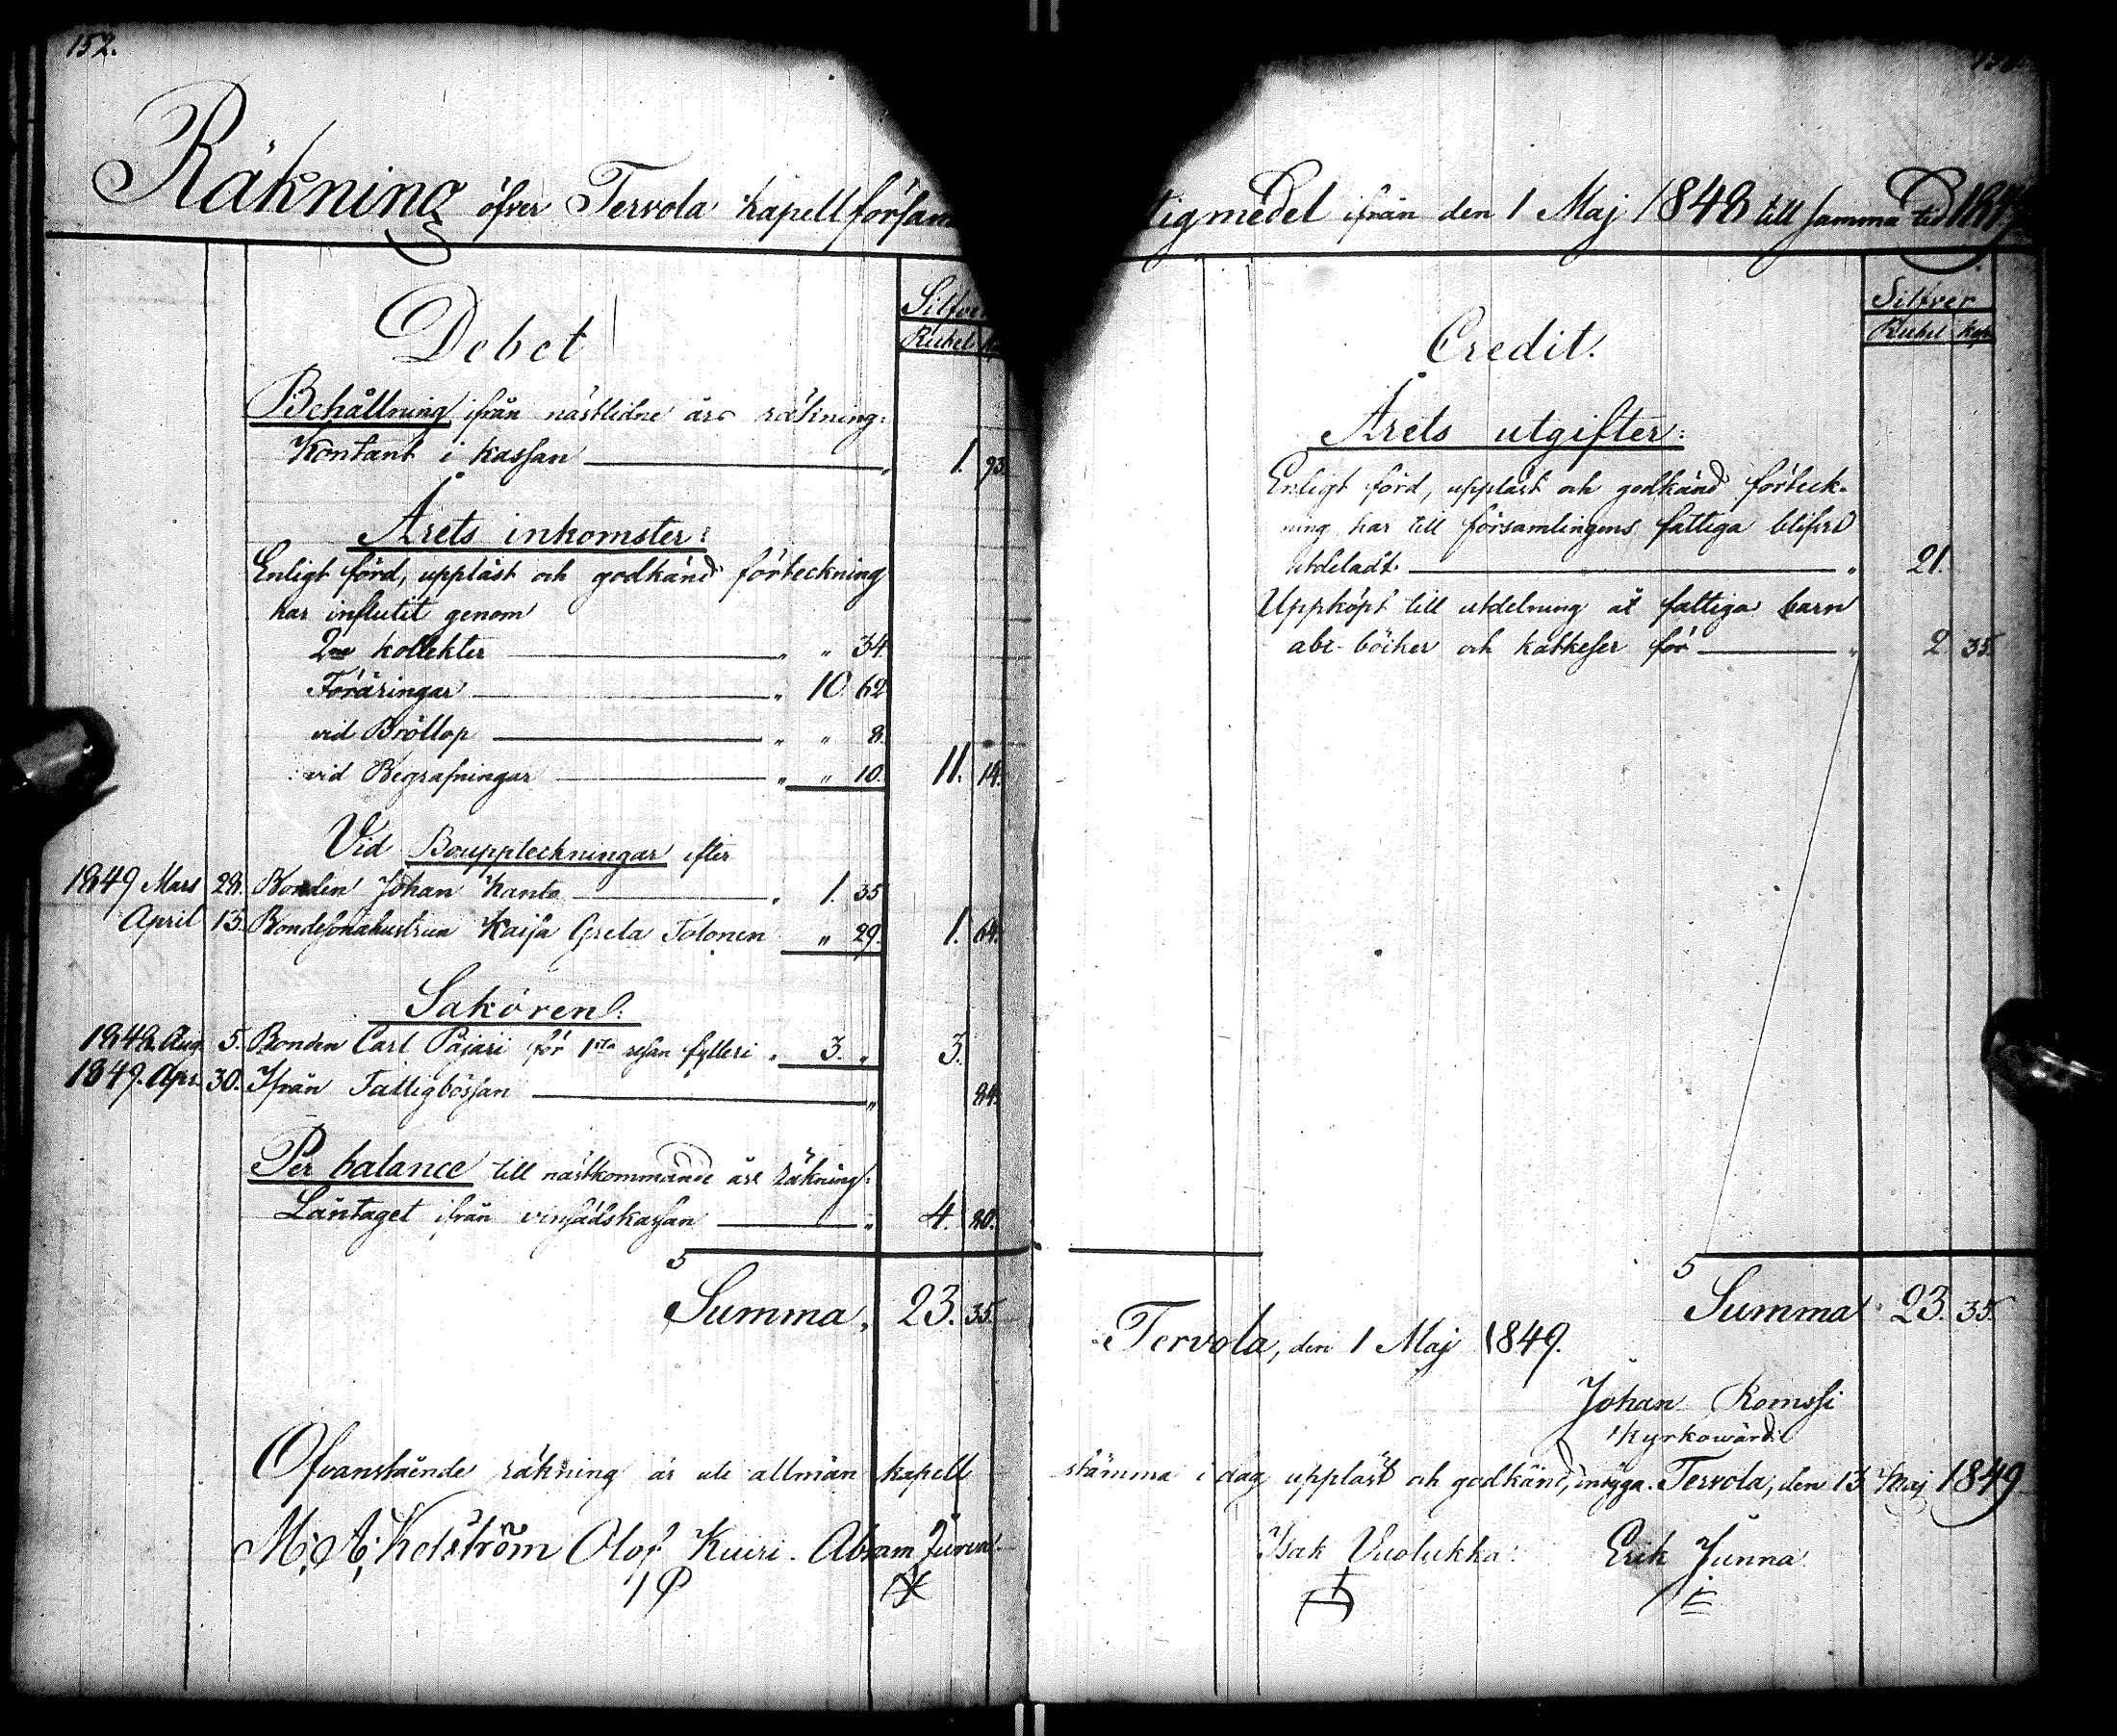 152.
Räkning öfver Tervola kapellförsam
Debet
Silfver
Rubel
Behållning ifrån nästlidne års räkning:
Kontant i kassan 1. 93.
Årets inkomster:
Enligt förd, uppläst och godkänd förteckning
har influtit genom
2ne kollekter " " 34.
Föräringar " 10. 62
vid Bröllop " " 8.
vid Begrafningar " " 10. 11. 14.
Vid Bouppteckningar efter
1849 Mars 28. Bonden Johan Kanto " 1. 35
April 13. Bondesonahustrun Kaisa Greta Tolonen " 29. 1. 64.
Sakören:
1848. Aug. 5. Bonden Carl Pajari för 1sta resan fylleri " 3. " 3.
1849. Apr. 30. Ifrån Fattigbössan " 84.
Per balance till nästkommande års räkning:
Låntaget ifrån vinsädskassan " 4. 80.
Summa, 23. 35.
Ofvanstående räkning är uti allmän kapell
Olof Kuuri. Abram
tigmedel ifrån den 1 Maj 1848 till samma tid 1849
Credit.
Silfver
Rubel kop.
Årets utgifter:
Enligt förd, uppläst och godkänd förteck-
ning har till församlingens fattiga blifvit
utdeladt. " 21.
Uppköpt till utdelning åt fattiga barn
abc-böcker och katkeser för " 2 35.
Summa 23. 35.
Tervola, den 1 Maj 1849.
Johan Romssi
Kyrkowärd.
stämma i dag uppläst och godkänd, intyga. Tervola, den 13 Maj 1849
Isak Vuolukka. Erik Junna